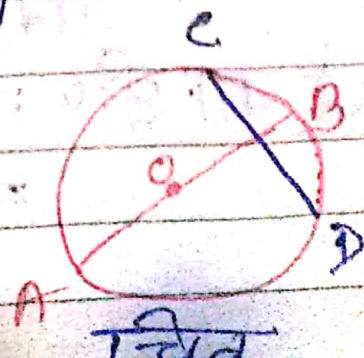 C
B
O
D
A
चित्र